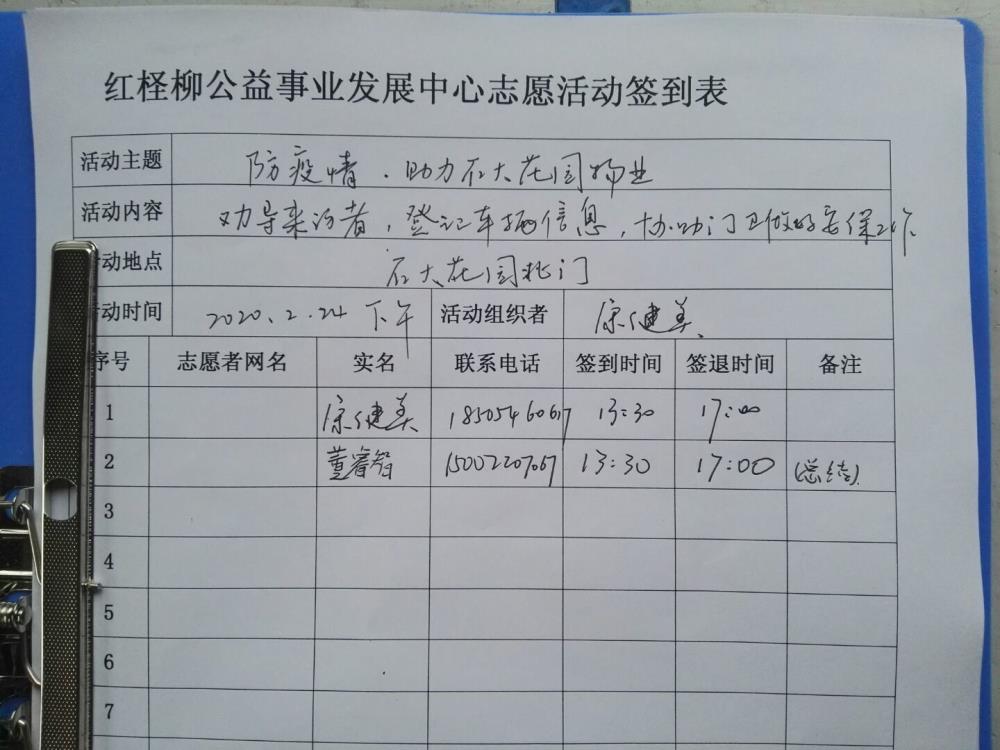 红柽柳公益事业发展中心志愿活动签到表
活动主题 防疫情.助力石大花园物业
活动内容 劝导来访者,登记车辆信息,协助门卫做好安保工作
动地点 石大花园北门
活动时间 2020.2.24 下午 活动组织者 康健美
序号 志愿者网名 实名 联系电话 签到时间 签退时间 备注
1 康健美 18505460617 13:30 17:00
2 董睿智 15002207067 13:30 17:00 (总结)
3
4
5
6
7